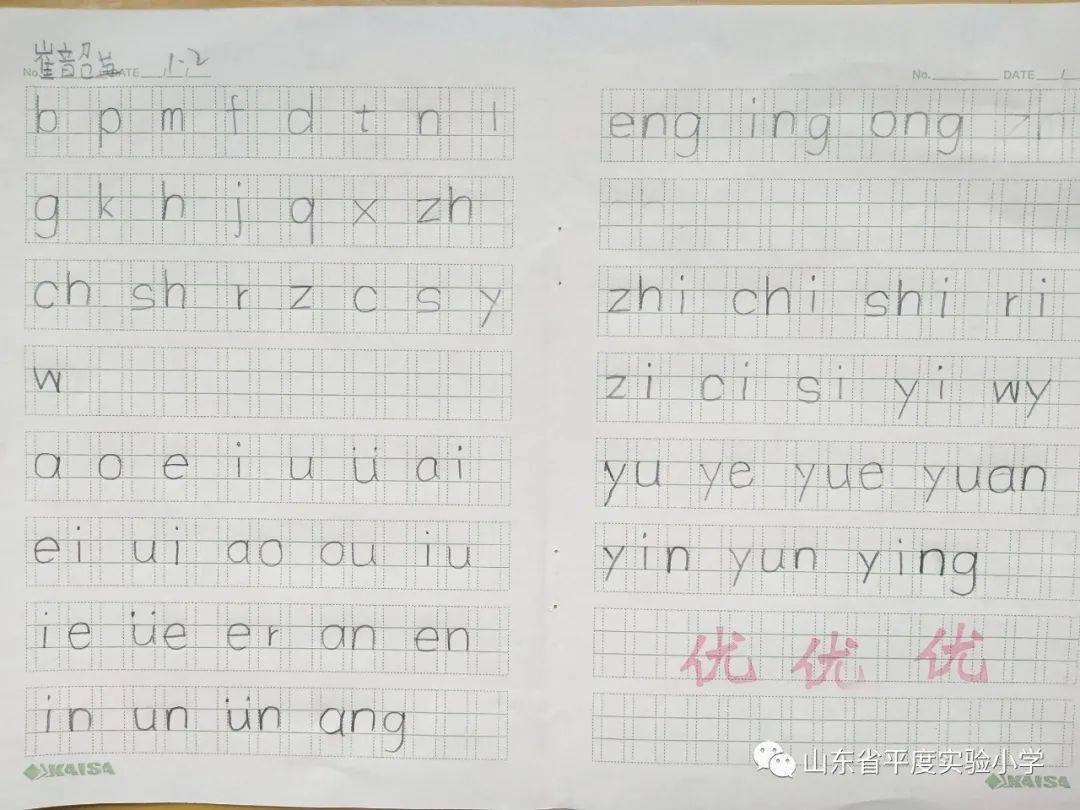 崔音韶英 1.2
No. DATE
b p m f d t n l
g k h j q x zh
ch sh r z c s y
w
a o e i u ü ai
ei ui ao ou iu
ie üe er an en
in un ün ang
KAISA
No. DATE
eng ing ong
zhi chi shi ri
zi ci si yi wy
yu ye yue yuan
yin yun ying
优 优 优
山东省平度实验小学
KAISA